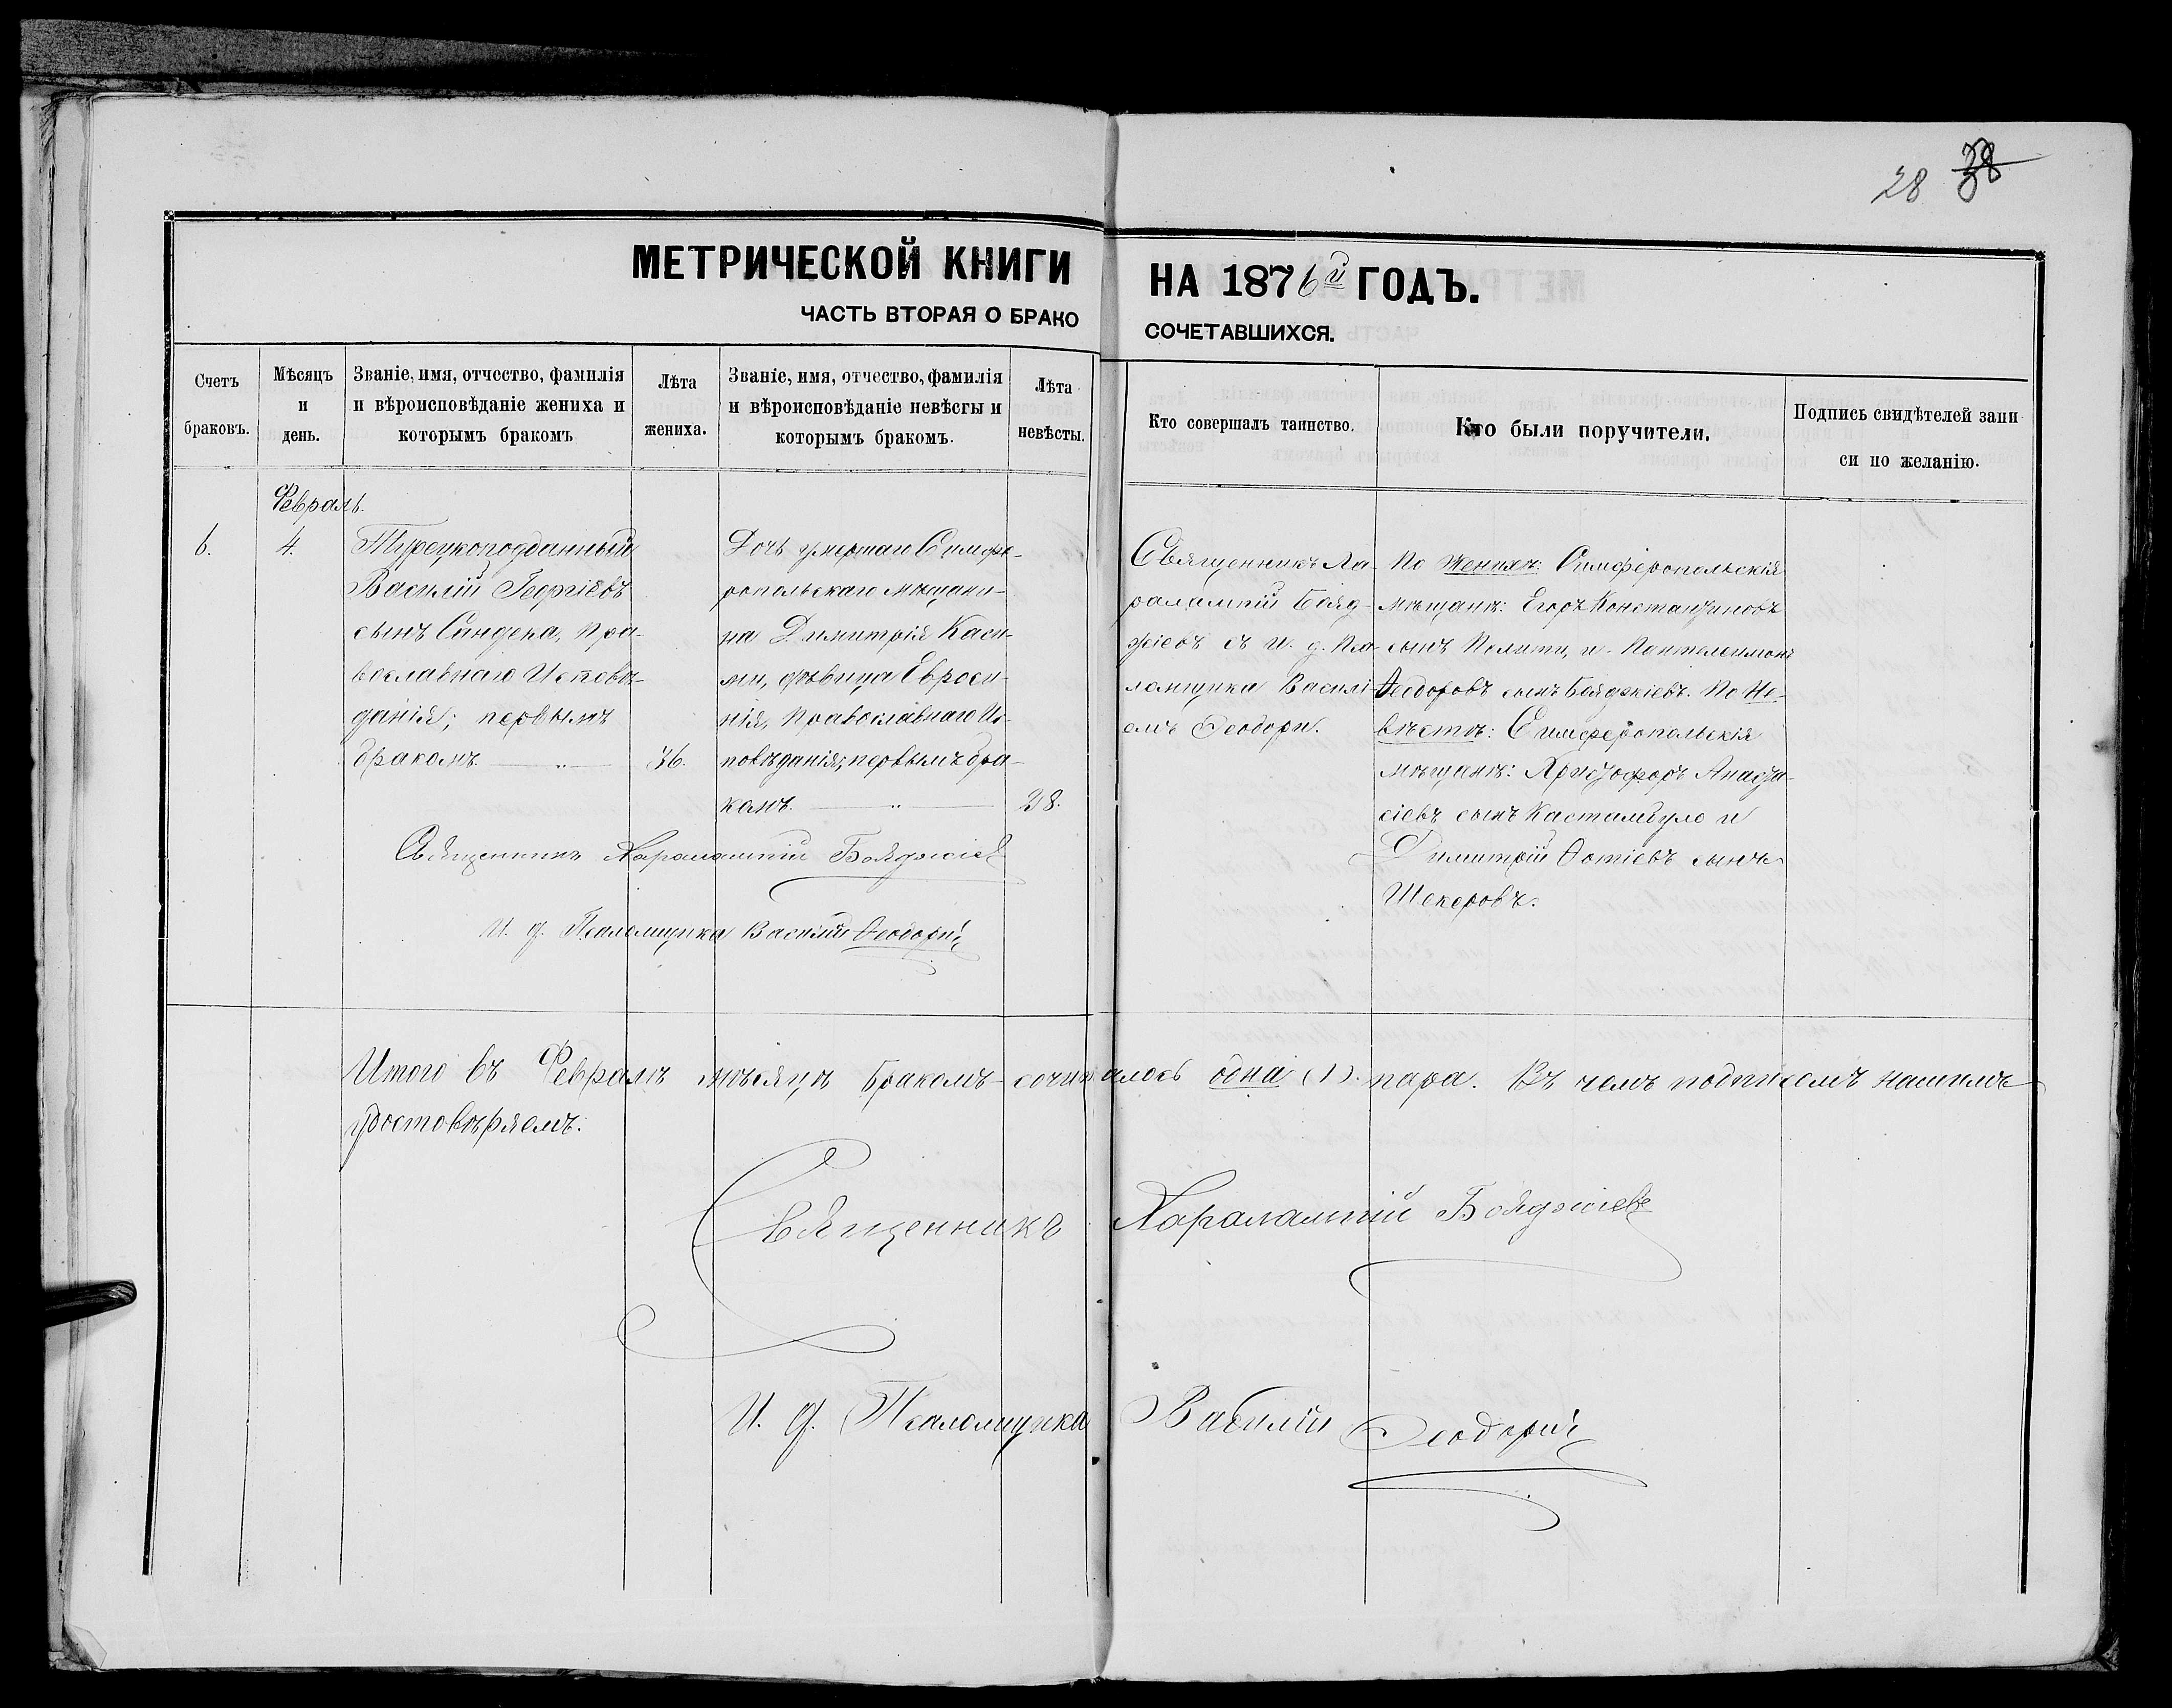 28 38
МЕТРИЧЕСКОЙ КНИГИ НА 1876й ГОДЪ.
ЧАСТЬ ВТОРАЯ О БРАКОСОЧЕТАВШИХСЯ.
Счетъ
браковъ.
Мѣсяцъ
и
день.
Званіе, имя, отчество, фамилія
и вѣроисповѣданіе жениха и
которымъ бракомъ
Лѣта
жениха.
Званіе, имя, отчество, фамилія
и вѣроисповѣданіе невѣсты и
которымъ бракомъ.
Лѣта
невѣсты.
Кто совершалъ таинство.
Кто были поручители.
Подпись свидѣтелей запи
си по желанію.
Февраль.
6.
4.
Турецкоподданный
Василій Георгіевъ
сынъ Сандека, Пра-
вославнаго Исповѣ-
данія; первымъ
бракомъ. — „ —
36.
Дочь умершаго Симфе-
ропольскаго мѣщани-
на Димитрія Каси-
ми, дѣвица Евроси-
нія, Православнаго Ис-
повѣданія; первымъ бра-
комъ. — „ —
28.
Священникъ Ха-
ралампій Бояд-
жіевъ съ и. д. Пса-
ломщика Василі-
емъ Ѳеодори.
По Женихѣ: Симферопольскія
мѣщане: Егоръ Константиновъ
сынъ Полити, и Пантелеимонъ
Ѳеодоровъ сынъ Бояджіевъ. По Не-
вѣстѣ: Симферопольскія
мѣщане: Христофоръ Анаста-
сіевъ сынъ Кастамбуло и
Димитрій Ѳотіевъ сынъ
Шекеровъ.
Священникъ Харалампій Бояджіевъ
И. д. Псаломщика Василій Ѳеодори
Итого въ Февралѣ мѣсяцѣ бракомъ сочиталось одна (1) пара. Въ чемъ подписомъ нашимъ
удостовѣряемъ.
Священникъ Харалампій Бояджіевъ
И. д. Псаломщика Василій Ѳеодори